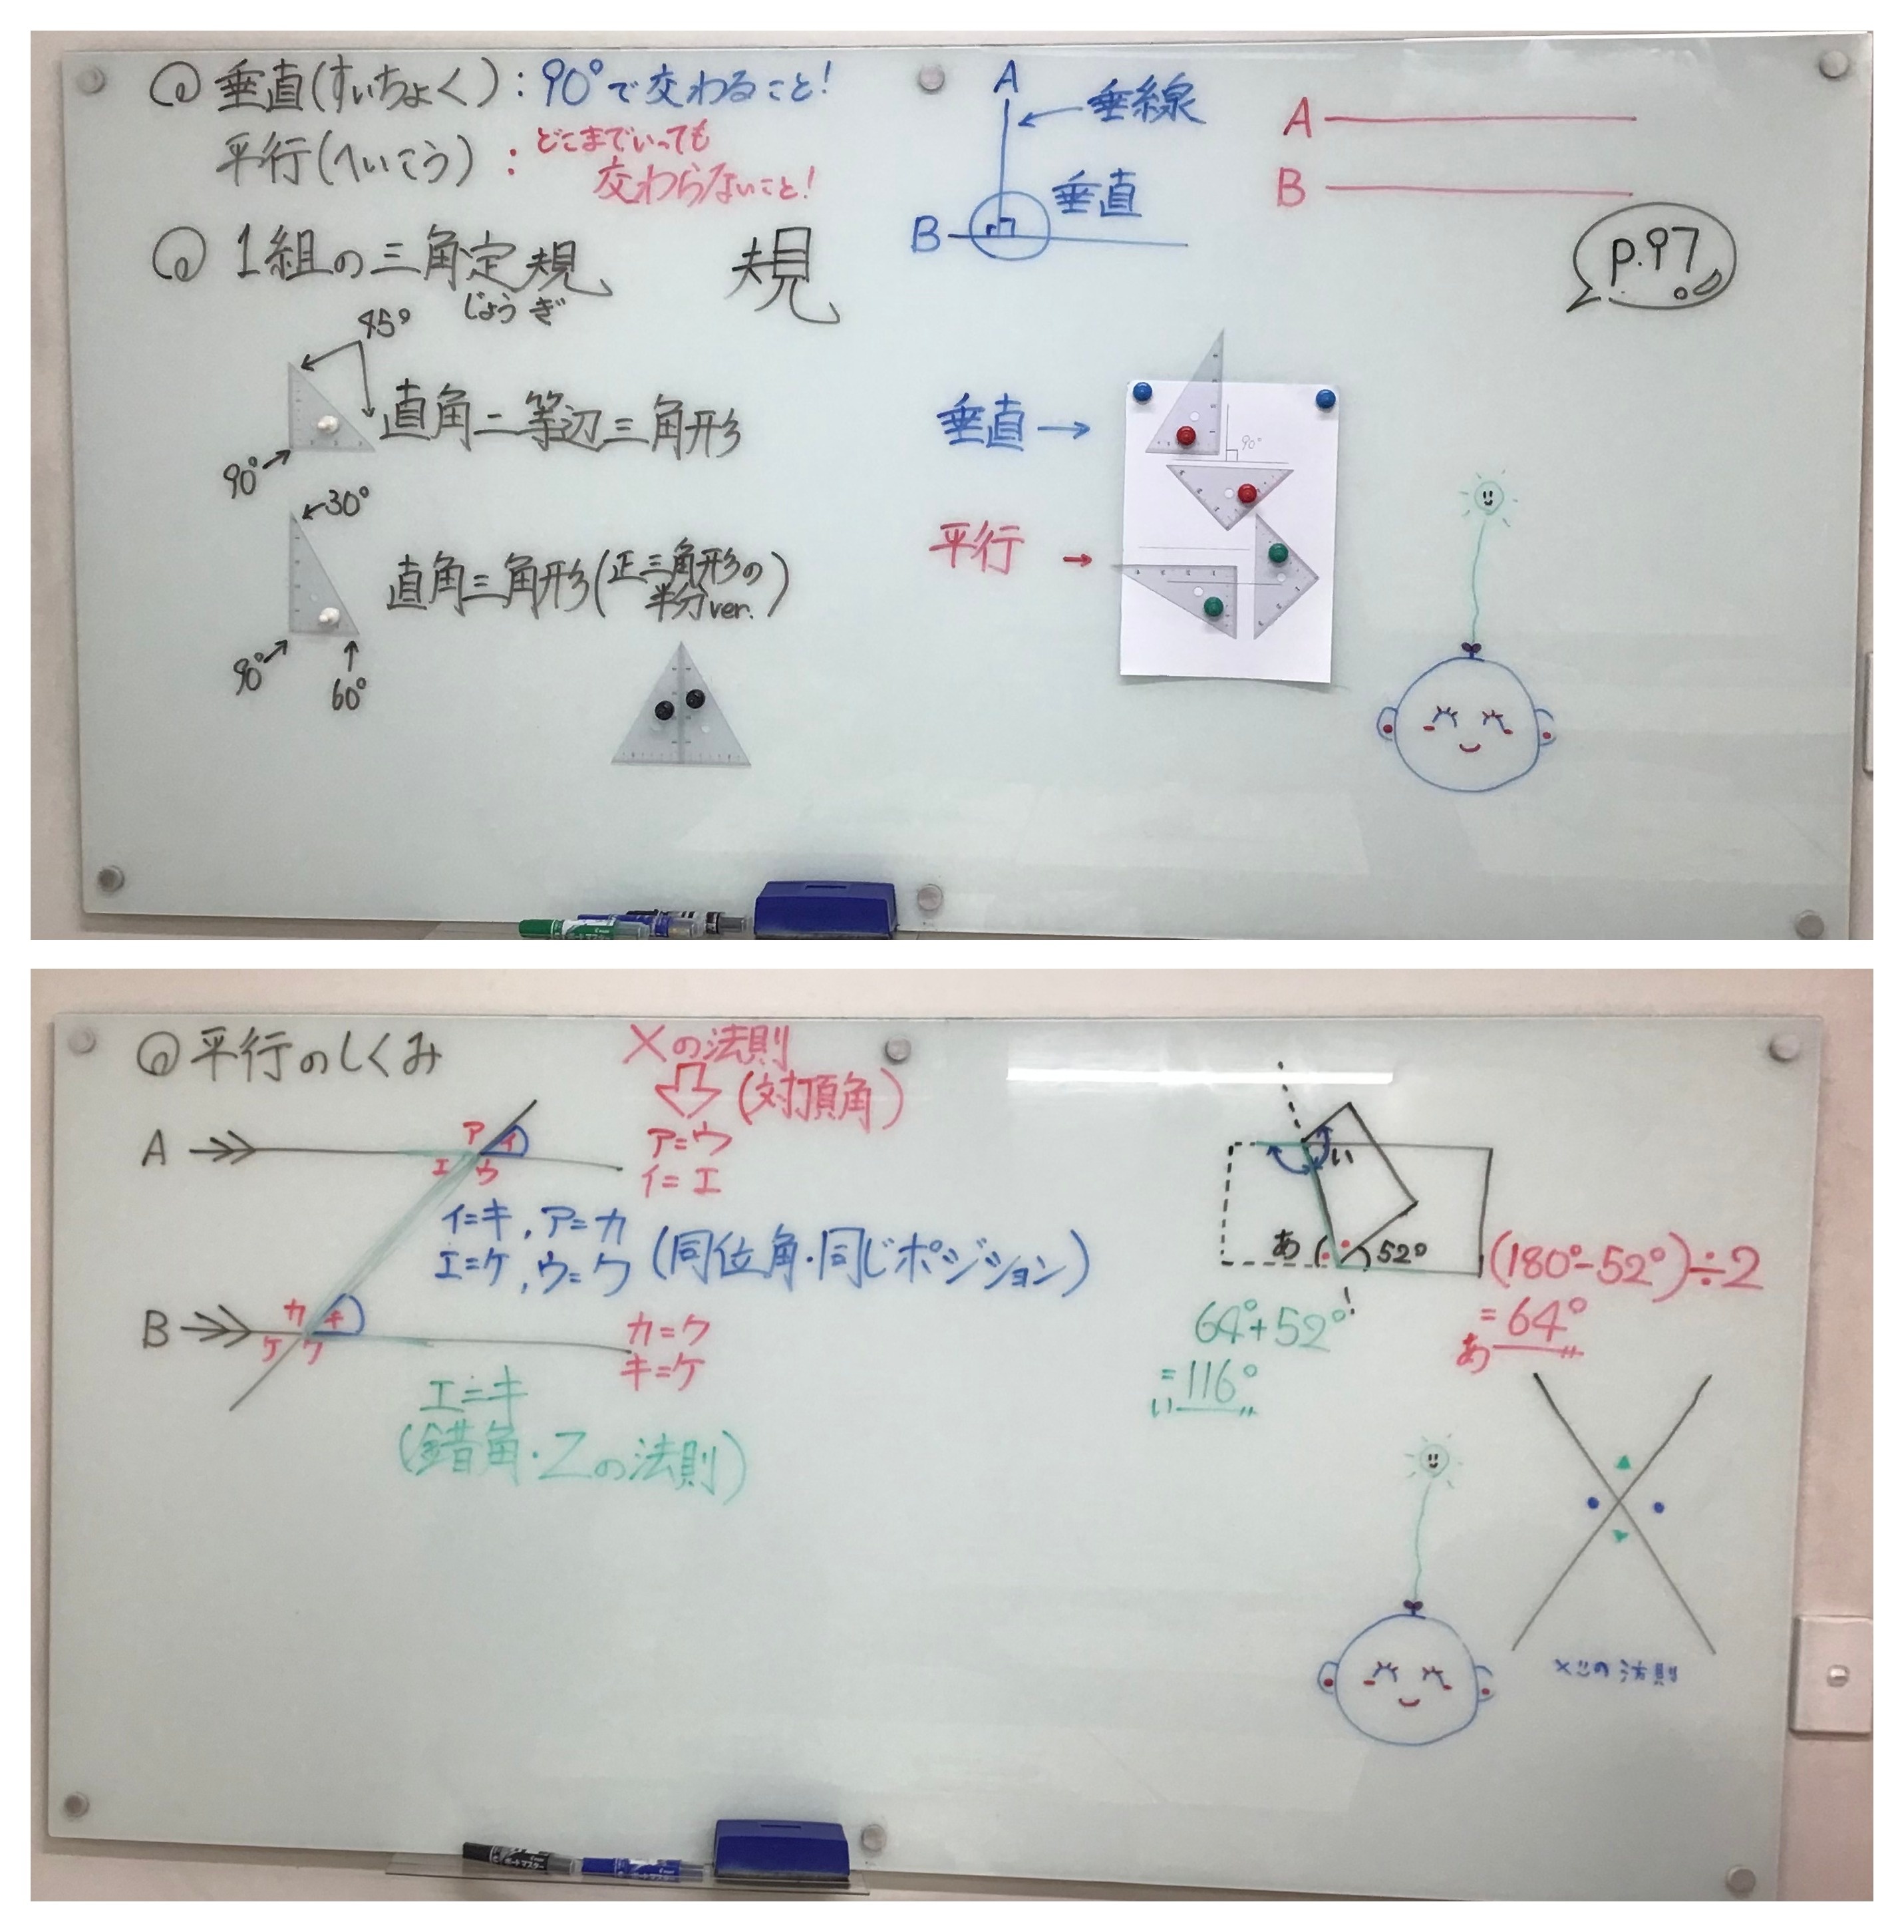 垂直(すいちょく):90°で交わること!
平行(へいこう):どこまでいっても
交わらないこと!
A
垂線
垂直
B
A
B
P.97
1組の三角定規
じょうぎ
規
45°
直角二等辺三角形
90°
30°
直角三角形(正三角形の
半分ver.)
90°
60°
垂直→
90°
平行→
平行のしくみ
Xの法則
(対頂角)
ア=ウ
イ=エ
A
ア
イ
エ
ウ
イ=キ,ア=カ
エ=ケ,ウ=ク(同位角・同じポジション)
B
カ
キ
ケ
ク
カ=ク
キ=ケ
エ=キ
(錯角・Zの法則)
い
あ
52°
(180°-52°)÷2
=64°
あ
64°+52°
=116°
い
の法則